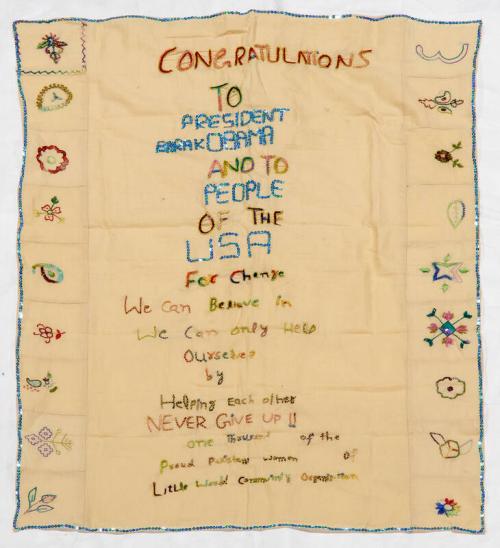 CONGRATULATIONS
TO
PRESIDENT
BARAK OBAMA
AND TO
PEOPLE
OF THE
USA
For Change
We Can Believe in
We Can only Help
Ourselves
by
Helping Each other
NEVER GIVE UP !!
one Thousand of the
Proud Pakistani women of
Little World Community Organization